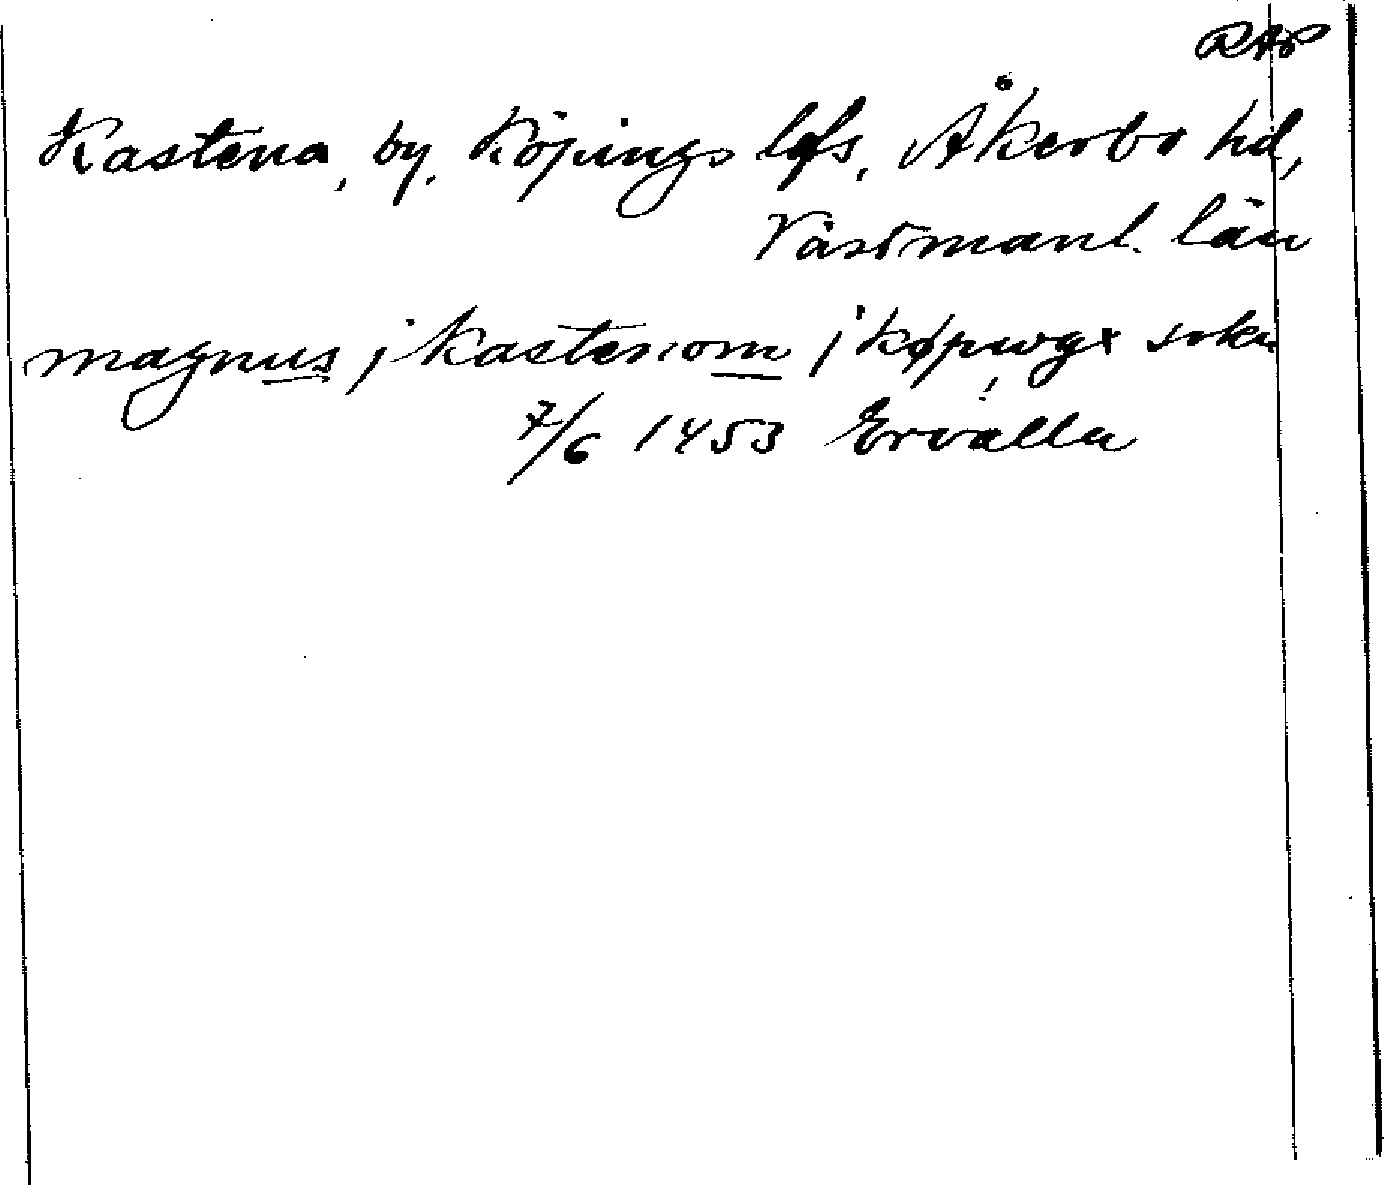 RAP
Kastena, by, Köpings lfs, Åkerbo hd,
Västmanl. län
magnus j kastenom j køpwgx sokn
7/6 1453 Ervalla